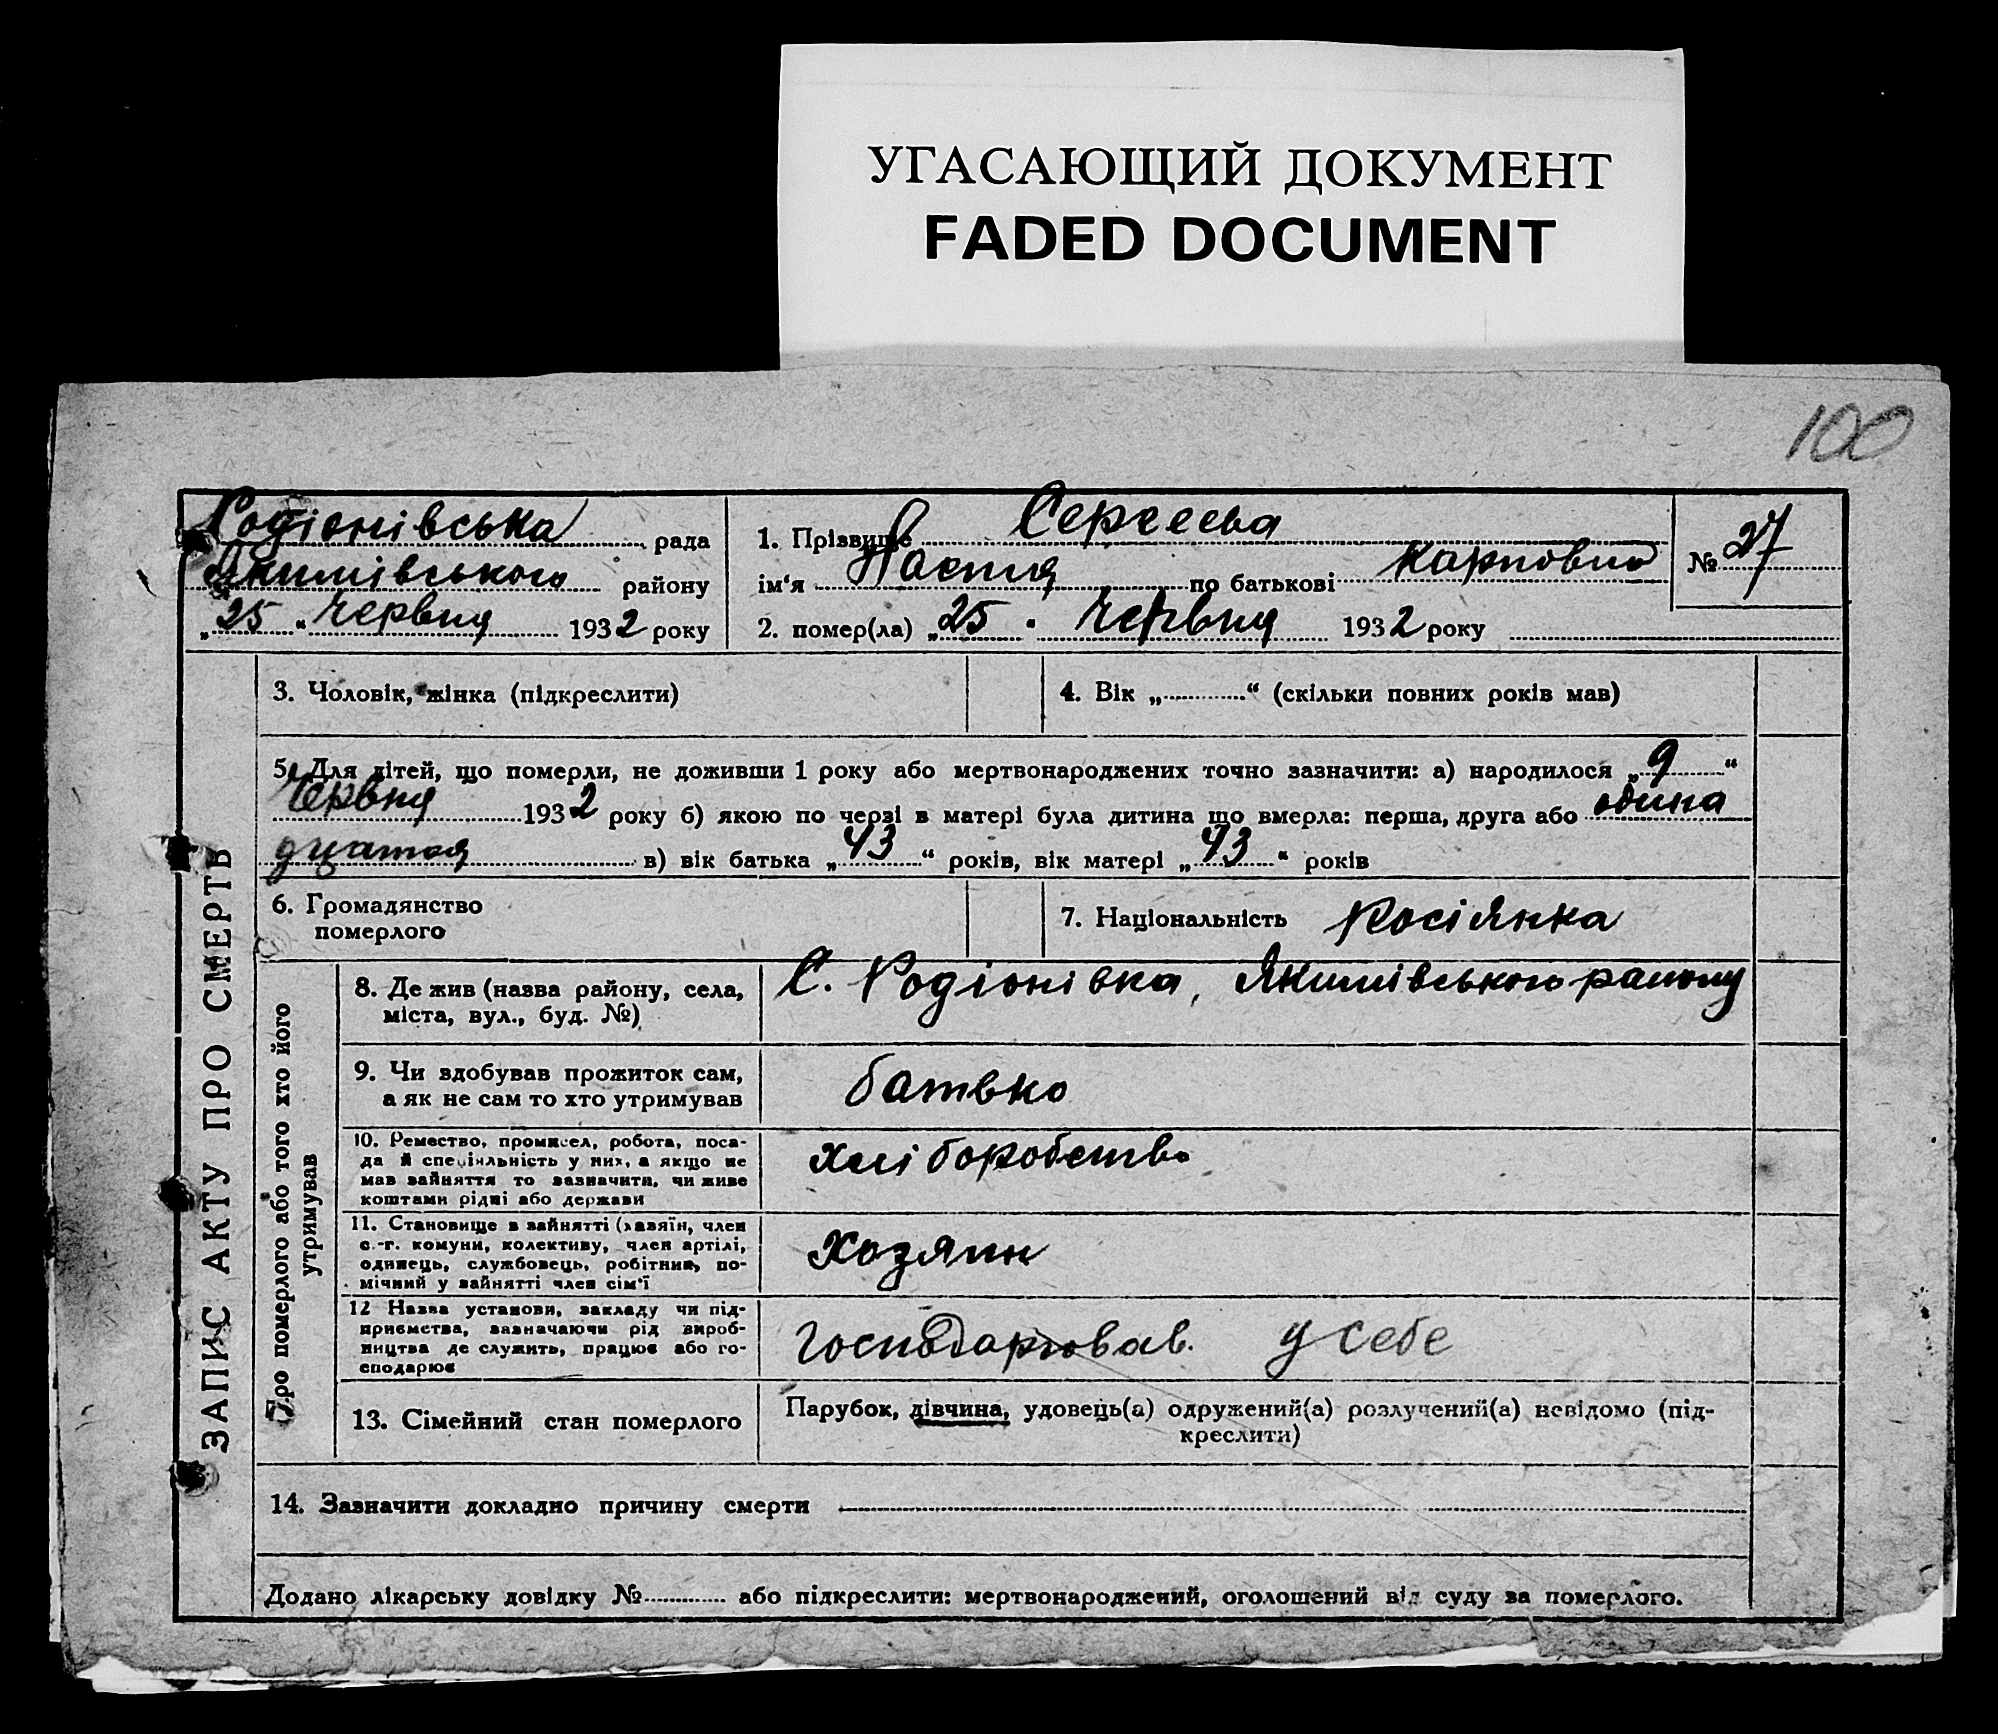 УГАСАЮЩИЙ ДОКУМЕНТ
FADED DOCUMENT
100
Родіонівська рада
Якимівського району
„25“ Червня 1932 року
1. Прізвище Сергеева
ім‘я Настя по батькові Карповна
№ 27
2. помер(ла) „25“ Червня 1932 року
ЗАПИС АКТУ ПРО СМЕРТЬ
3. Чоловік, жінка (підкреслити)
4. Вік „......“ (скільки повних років мав)
5. Для дітей, що померли, не доживши 1 року або мертвонароджених точно зазначити: а) народилося „9“
Червня 1932 року б) якою по черзі в матері була дитина що вмерла: перша, друга або одина
дцатая в) вік батька „43“ років, вік матері „43“ років
6. Громадянство
померлого
7. Національність Росіянка
Про померлого або того хто його
утримував
8. Де жив (назва району, села,
міста, вул., буд. №)
С. Родіонівка, Якимівського району
9. Чи здобував прожиток сам,
а як не сам то хто утримував
батько
10. Ремество, промисел, робота, поса-
да й спеціяльність у них, а якщо не
мав зайняття то зазначити, чи живе
коштами рідні або держави
хліборобство
11. Становище в зайнятті (хазяїн, член
с.-г. комуни, колективу, член артілі,
одинець, службовець, робітник, по-
мічний у зайнятті член сім‘ї
Хозяин
12 Назва установи, закладу чи під-
приємства, зазначаючи рід вироб-
ництва де служить, працює або го-
сподарює
господарював. у себе
13. Сімейний стан померлого
Парубок, дівчина, удовець(а) одружений(а) розлучений(а) невідомо (під-
креслити)
14. Зазначити докладно причину смерти
Додано лікарську довідку №...... або підкреслити: мертвонароджений, оголошений від суду за померлого.